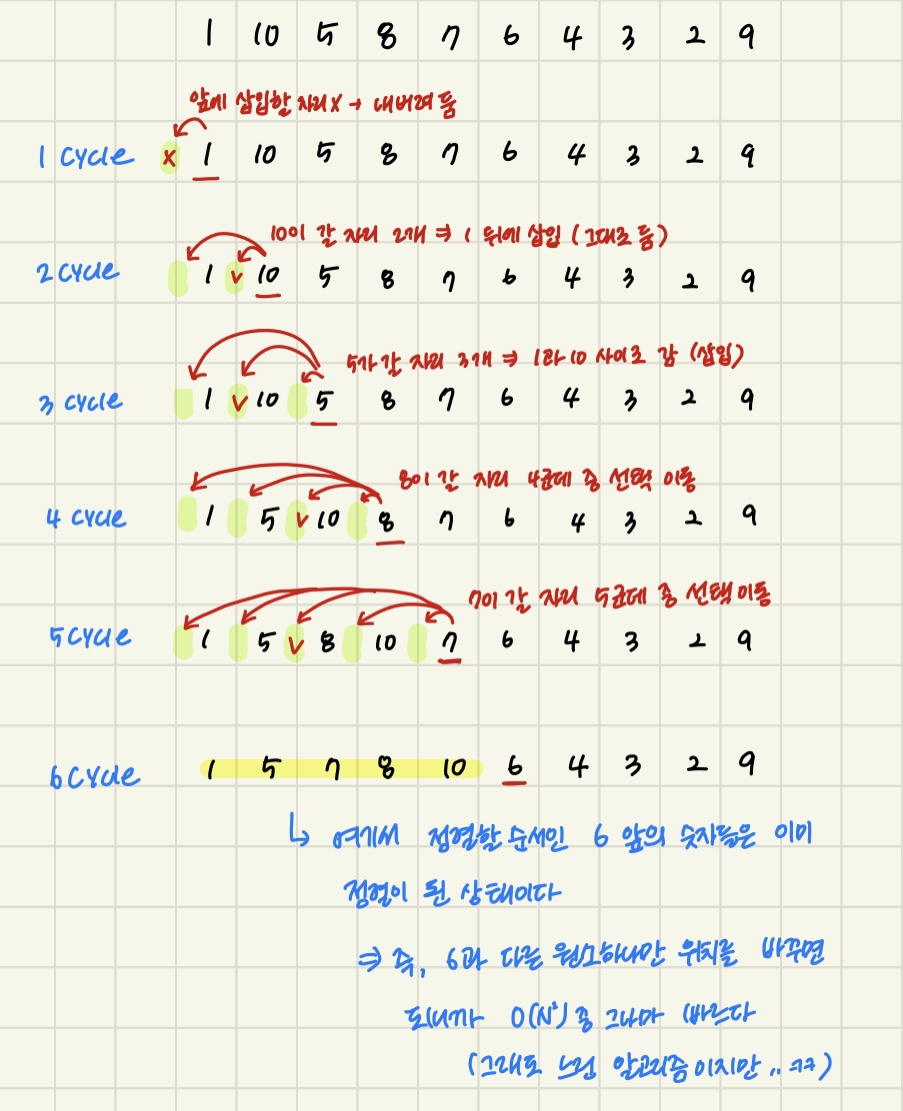 1 10 5 8 7 6 4 3 2 9
앞에 삽입할 자리X → 내버려 둠
1 cycle x 1 10 5 8 7 6 4 3 2 9
10이 갈 자리 2개 ⇒ 1 뒤에 삽입 (그대로 둠)
2 cycle 1 v 10 5 8 7 6 4 3 2 9
5가 갈 자리 3개 ⇒ 1과 10 사이로 감 (삽입)
3 cycle 1 v 10 5 8 7 6 4 3 2 9
8이 갈 자리 4군데 중 선택 이동
4 cycle 1 5 v 10 8 7 6 4 3 2 9
7이 갈 자리 5군데 중 선택 이동
5 cycle 1 5 v 8 10 7 6 4 3 2 9
6 cycle 1 5 7 8 10 6 4 3 2 9
↳ 여기서 정렬할 순서인 6 앞의 숫자들은 이미
정렬이 된 상태이다
⇒ 즉, 6과 다른 원소하나만 위치를 바꾸면
되니까 O(N²) 중 그나마 빠르다
(그래도 느린 알고리즘이지만 .. ㅋㅋ)